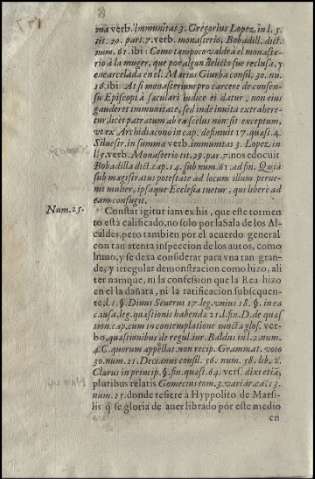 ma verb. immunitas 3. Gregorius Lopez, in l. 5.
tit. 29. part. 7. verb. monasterio, Bobadill. dict.
num. 61. ibi: Como tampoco valdrà el monaste-
rio à la muger, que por algun delicto fue reclusa, y
encarcelada en el. Marius Giurba consil. 30. nu.
16. ibi: At si monasterium pro carcere de consen-
su Episcopi à sæculari iudice ei datur, non eius
gauderet immunitate, sed inde inuita extrahere-
tur dicet patratum ab ea scelus minus sit exceptum,
ut ex Archidiacono in cap. definuit 17. quæst. 4.
Siluestr. in summa verb. immunitas 3. Lopez, in
ll. 5. verb. Monasterio tit. 29. par. 7. nos edocuit
Bobadilla dict. cap. 14. sub num. 61. ad fin. Quia
sub magistratus potestate ad locum illum perue-
nit mulier, ipsaque Ecclesia tuetur, qui liberè ad
eam confugit.
Num. 25. Constat igitur iam ex his, que este tormen
to està calificado, no solo por la Sala de los Al-
caldes, pero tambien por el acuerdo general
con tan atenta inspeccion de los autos, como
huuo, y se dexa considerar para vna tan gran-
de, y irregular demonstracion como hizo, ali
ter namque, ni la confession que la Rea hizo
en el la dañara, ni la ratificacion subsequen-
te, d. l. §. Diuus Seuerus 17. leg. vnius 18. §. in ea
causa, leg. quæstionis habenda 21. l. fin. D. de quæs
tion. cap. cum in contemplatione vbi cta glos. ver-
bo, quæstionibus de regul. iur. Baldus in l. 2. num.
4. C. quorum appellat. non recip. Grammat. voto
30. num. 21. Decianus consil. 36. num. 38. lib. 2.
Clarus in princip. §. fin. quæst. 64. vers. dixi etiã,
pluribus relatis Gomecius tom. 3. variar. cap. 13.
num. 25. donde refiere à Hyppolito de Marsi-
lis q̃ se gloria de auer librado por este medio
en